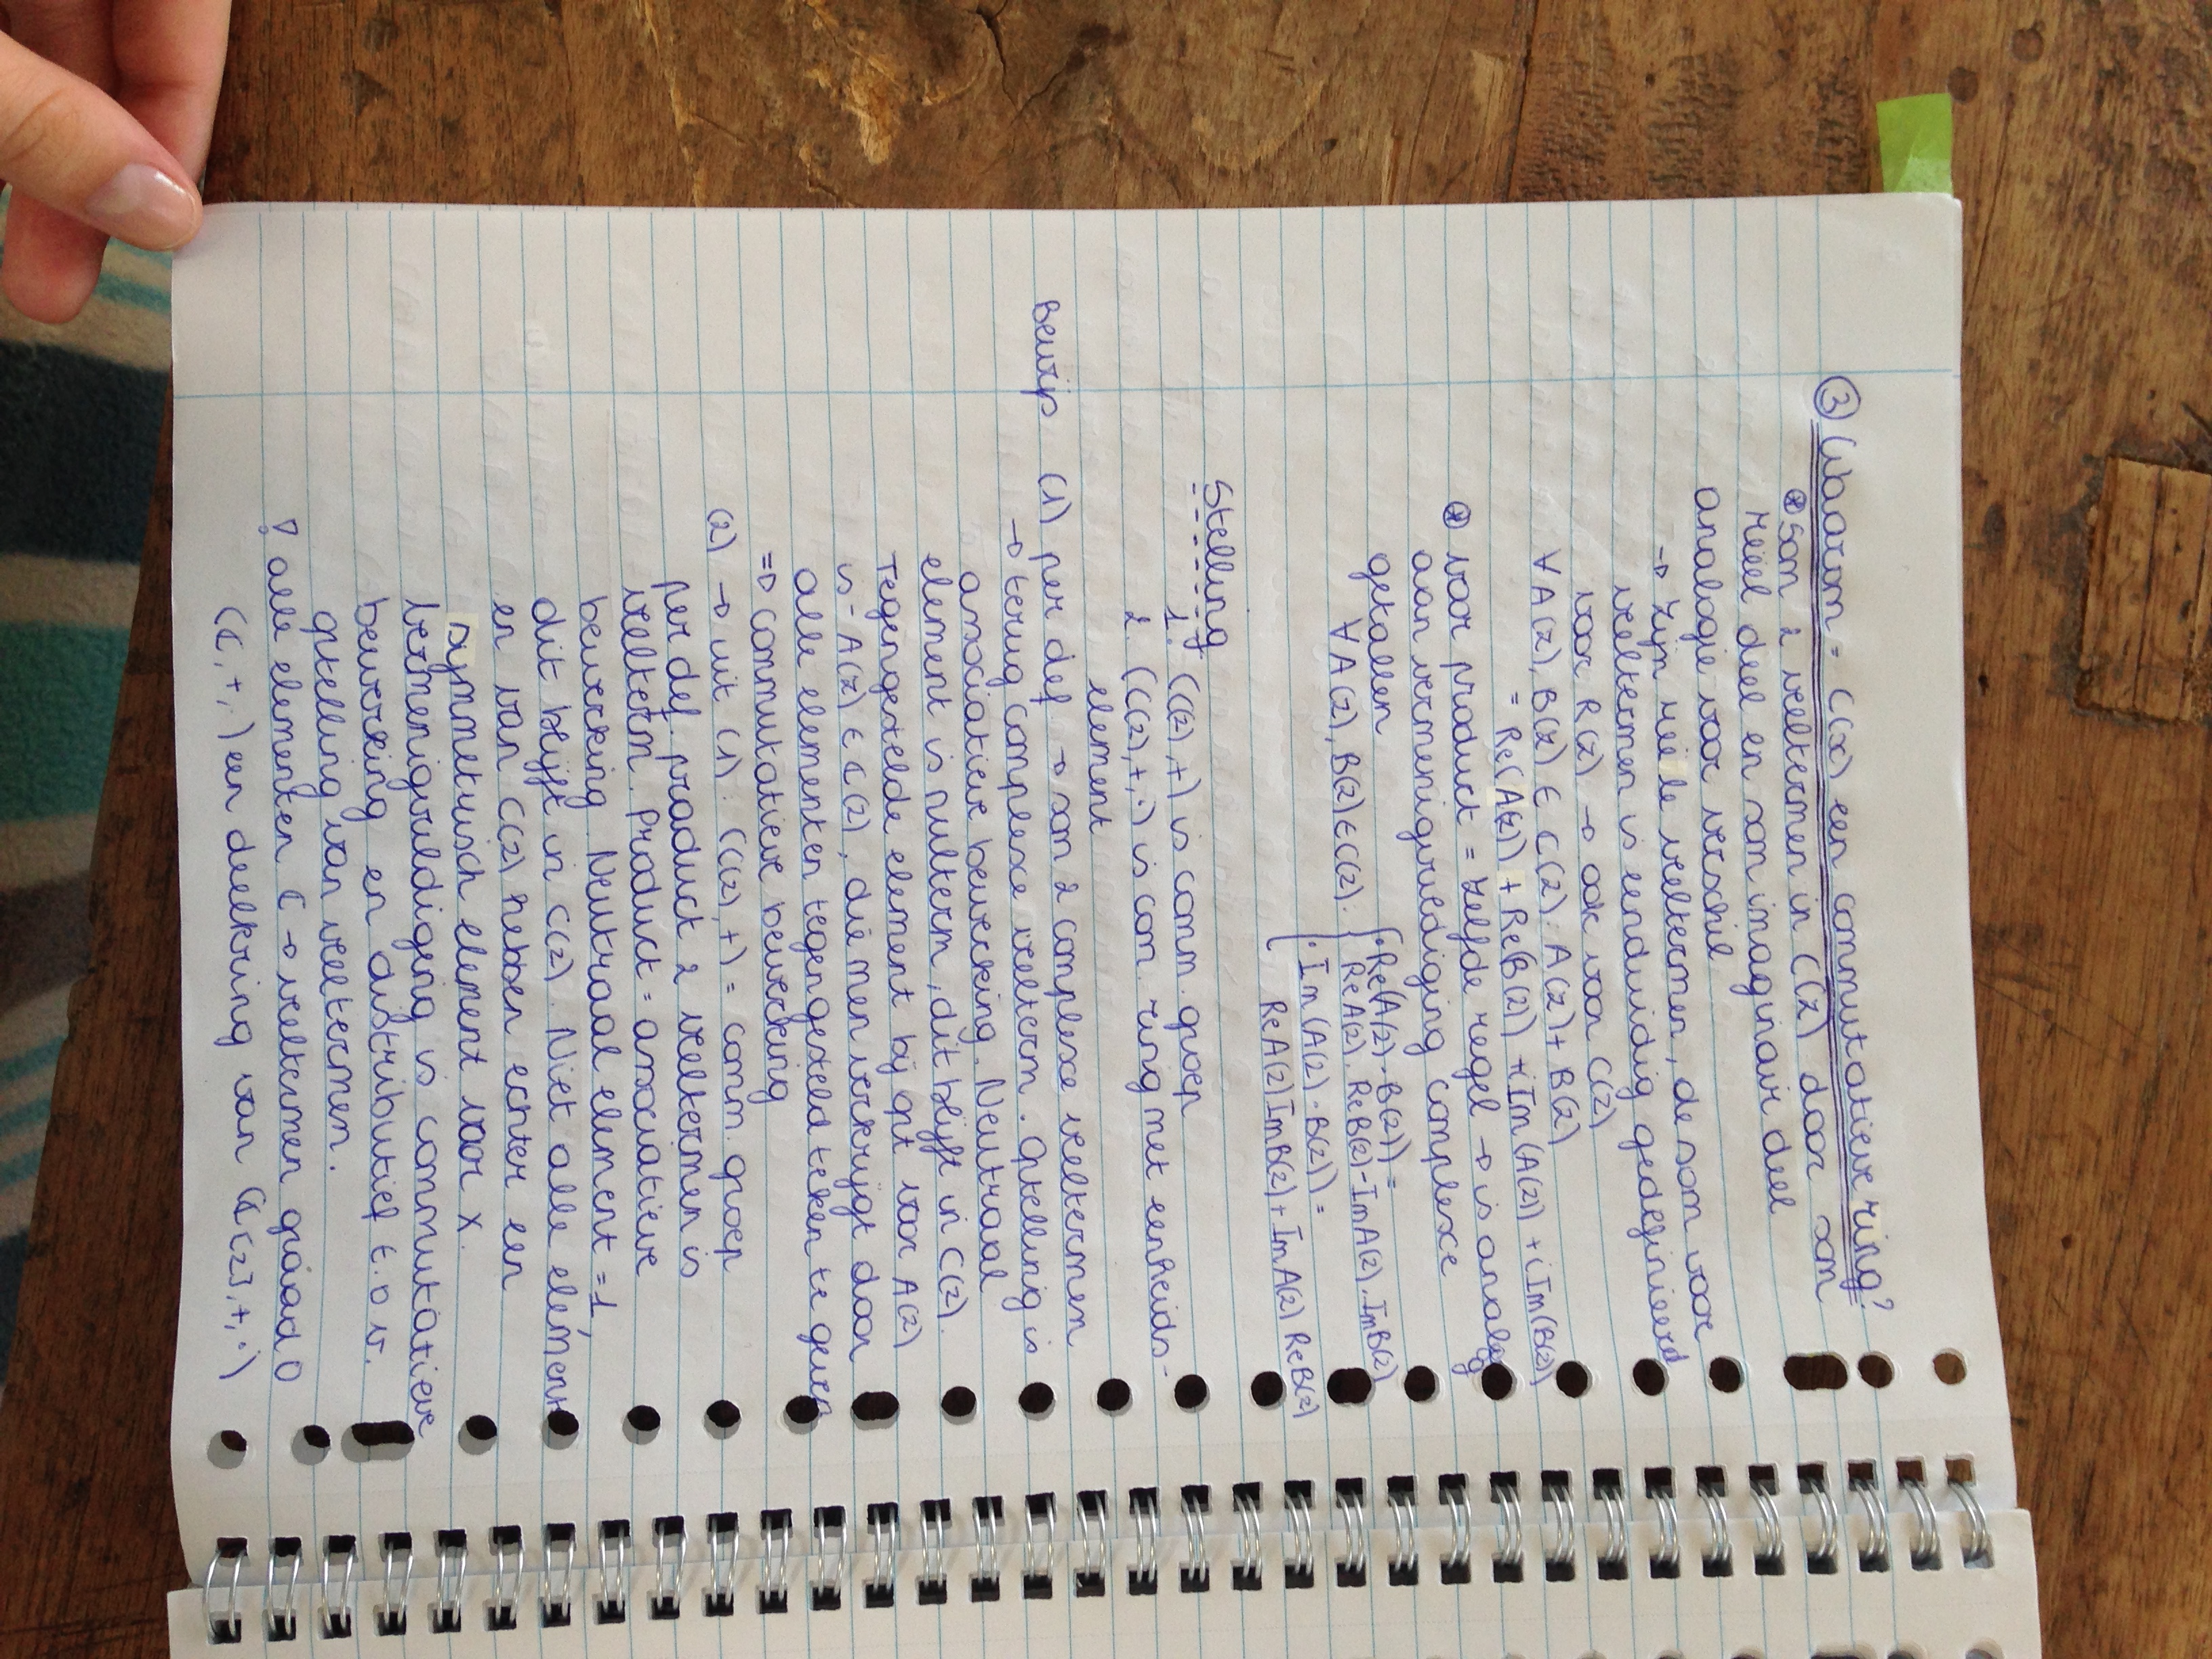 ③ Waarom = C(x) een commutatieve ring?
⊛ Som 2 veeltermen in C(z) door som
reëel deel en som imaginair deel
analogie voor verschil
→ zijn reële veeltermen, de som voor
veeltermen is eenduidig gedefinieerd
voor R(z) → ook voor C(z)
∀ A(z), B(z) ∈ C(z): A(z) + B(z)
= Re(A(z)) + Re(B(z)) + i Im(A(z)) + i Im(B(z))
⊛ voor product = zelfde regel → is analoog
aan vermenigvuldiging complexe
getallen
∀ A(z), B(z) ∈ C(z): { • Re(A(z) · B(z)) =
Re A(z) . Re B(z) - Im A(z) . Im B(z)
• Im (A(z) · B(z)) =
Re A(z) Im B(z) + Im A(z) Re B(z)
Stelling
1. (C(z), +) is comm. groep
2. (C(z), +, ·) is com. ring met eenheids-
element
Bewijs (1) per def. → som 2 complexe veeltermen
→ terug complexe veelterm. Optelling is
associatieve bewerking. Neutraal
element is nulterm, dit blijft in C(z).
Tegengestelde element bij opt voor A(z)
is - A(z) ∈ ℂ(z), die men verkrijgt door
alle elementen tegengesteld teken te geven
⇒ commutatieve bewerking
(2) → uit (1): (C(z), +) = comm. groep
per def. product 2 veeltermen is
veelterm. Product = associatieve
bewerking. Neutraal element = 1,
dit blijft in C(z). Niet alle element
en van C(z) hebben echter een
symmetrisch element voor x.
Vermenigvuldiging is commutatieve
bewerking en distributief t.o.v.
optelling van veeltermen.
! alle elementen ℂ → veeltermen graad 0
(ℂ, +, ·) een deelkring van (ℂ[z], +, ·)